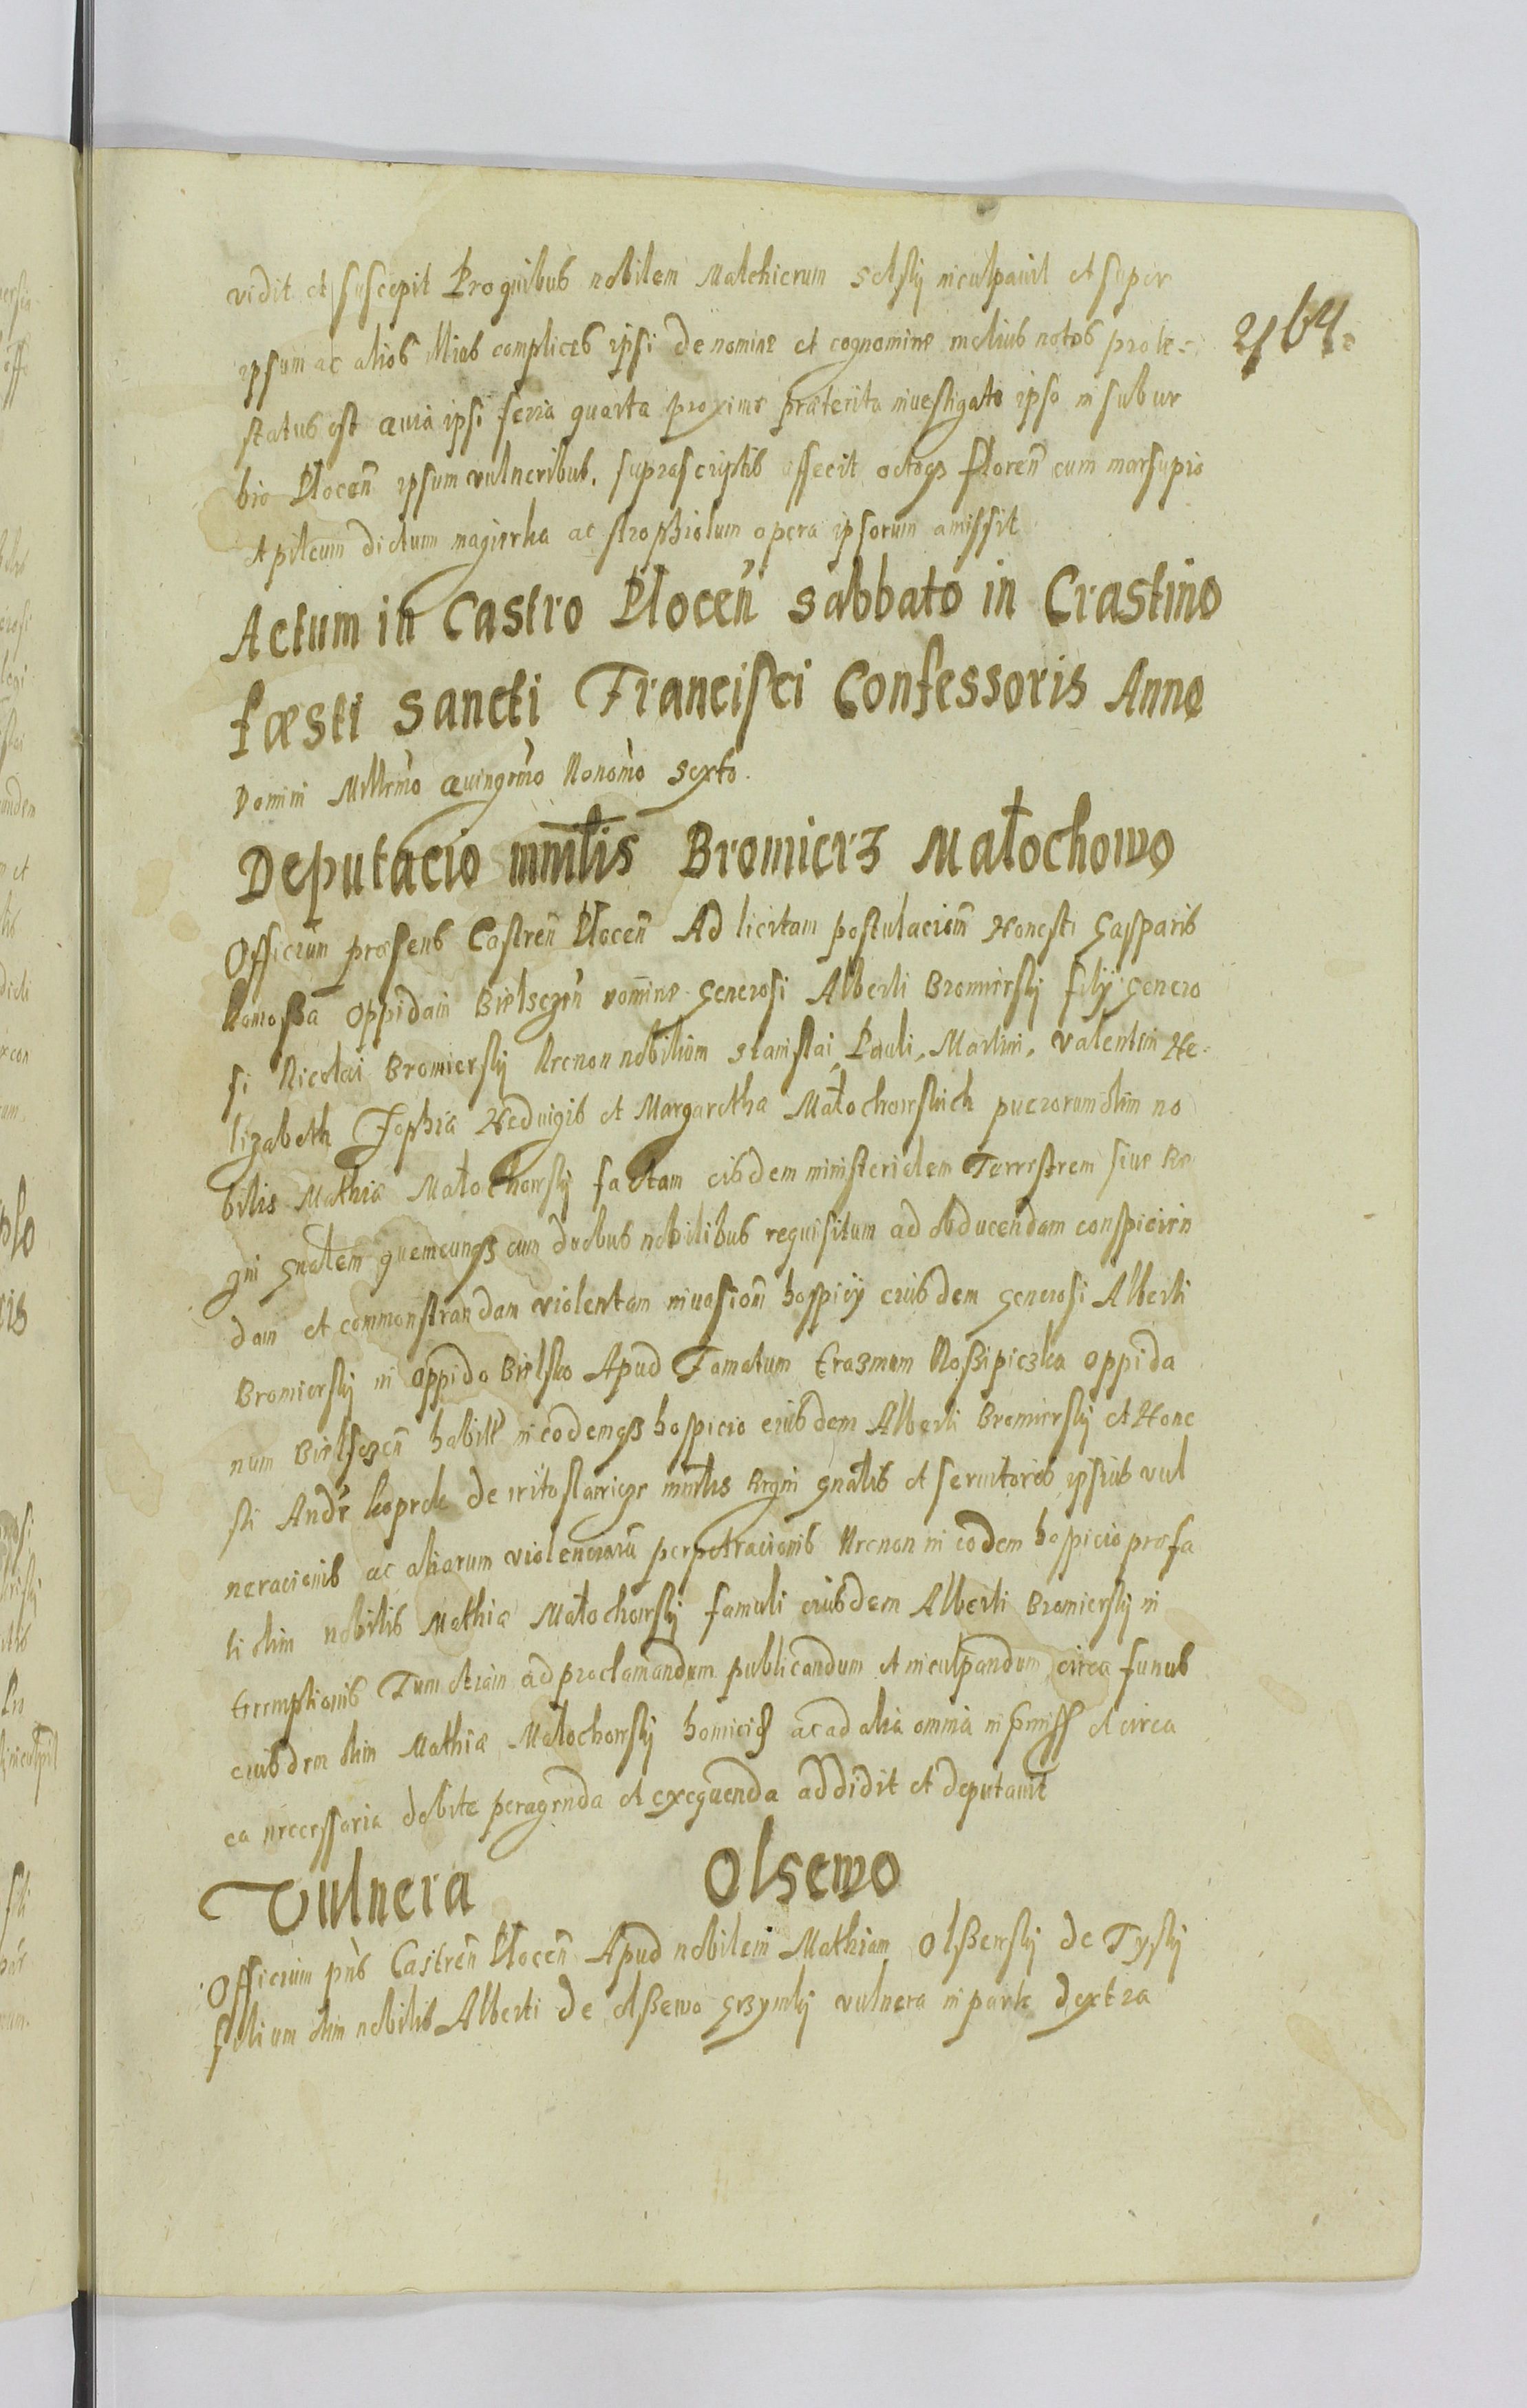 vidit et suscepit Pro quibus nobilem Malchierum inculpavit et super
ipsum ac alios illius complices ipsi de nomine et cognomine melius notos prote-
2164.
status est quia ipsi feria quarta proxime præterita investigato ipso in subur
bio Plocen̄ ipsum vulneribus, suprascriptis affecit octogs floren̄ cum marsupio
et pileum dictum magierka ac strophiolum opera ipsorum amissit
Actum in Castro Plocen̄ Sabbato in Crastino
fæsti Sancti Francisci Confessoris Anno
Domini Millemo Quingemo Nonomo Sexto.
Deputacio mntlis Bromierz Małochowo
Officium præsens Castren̄ Plocen̄ Ad licitam postulacionm̄ Honesti Gasparis
oppidani Bielsczen̄ nomine Generosi Alberti Bromierskij filij genero
si Nicolai Bromierskij Necnon nobilium Stanislai, Pauli, Martini, Valentini He-
lizabeth Zophia Hedvigis et Margaretha Małochowskich puerorum olim no
bilis Mathiæ Małochowskij factam eisdem ministerialem Terrestrem sive Re
gni gnalem quemcunqȝ cum duobus nobilibus requisitum ad obducendam conspicien
dam et commonstrandam violentam invasionm̄ hospicij eiusdem Generosi Alberti
Bromierskij in oppido Bielsko Apud Famatum Erazmum oppida
num Bielsczen̄ habitt in eodemqȝ hospicio eiusdem Alberti Bromierskij et Hone
sti Andr̄ de mntlis Regni gnalis et servitoris ipsius vul
neracionis ac aliarum violenciarū perpetracionis Necnon in eodem hospicio præfa
ti olim nobilis Mathiæ Małochowskij famuli eiusdem Alberti Bromierskij in
teremptionis Tum etiam ad proclamandum publicandum et inculpandum circa funus
eiusdem olim Mathiæ Małochowskij homicid ac ad alia omnia in pmiss et circa
ea necessaria debite peragenda et exequenda addidit et deputavit
Vulnera Olsewo
Officium pns Castren̄ Plocen̄ Apud nobilem Mathiam Olßewskij de Tyskij
filium olim nobilis Alberti de Olßewo vulnera in parte dextra